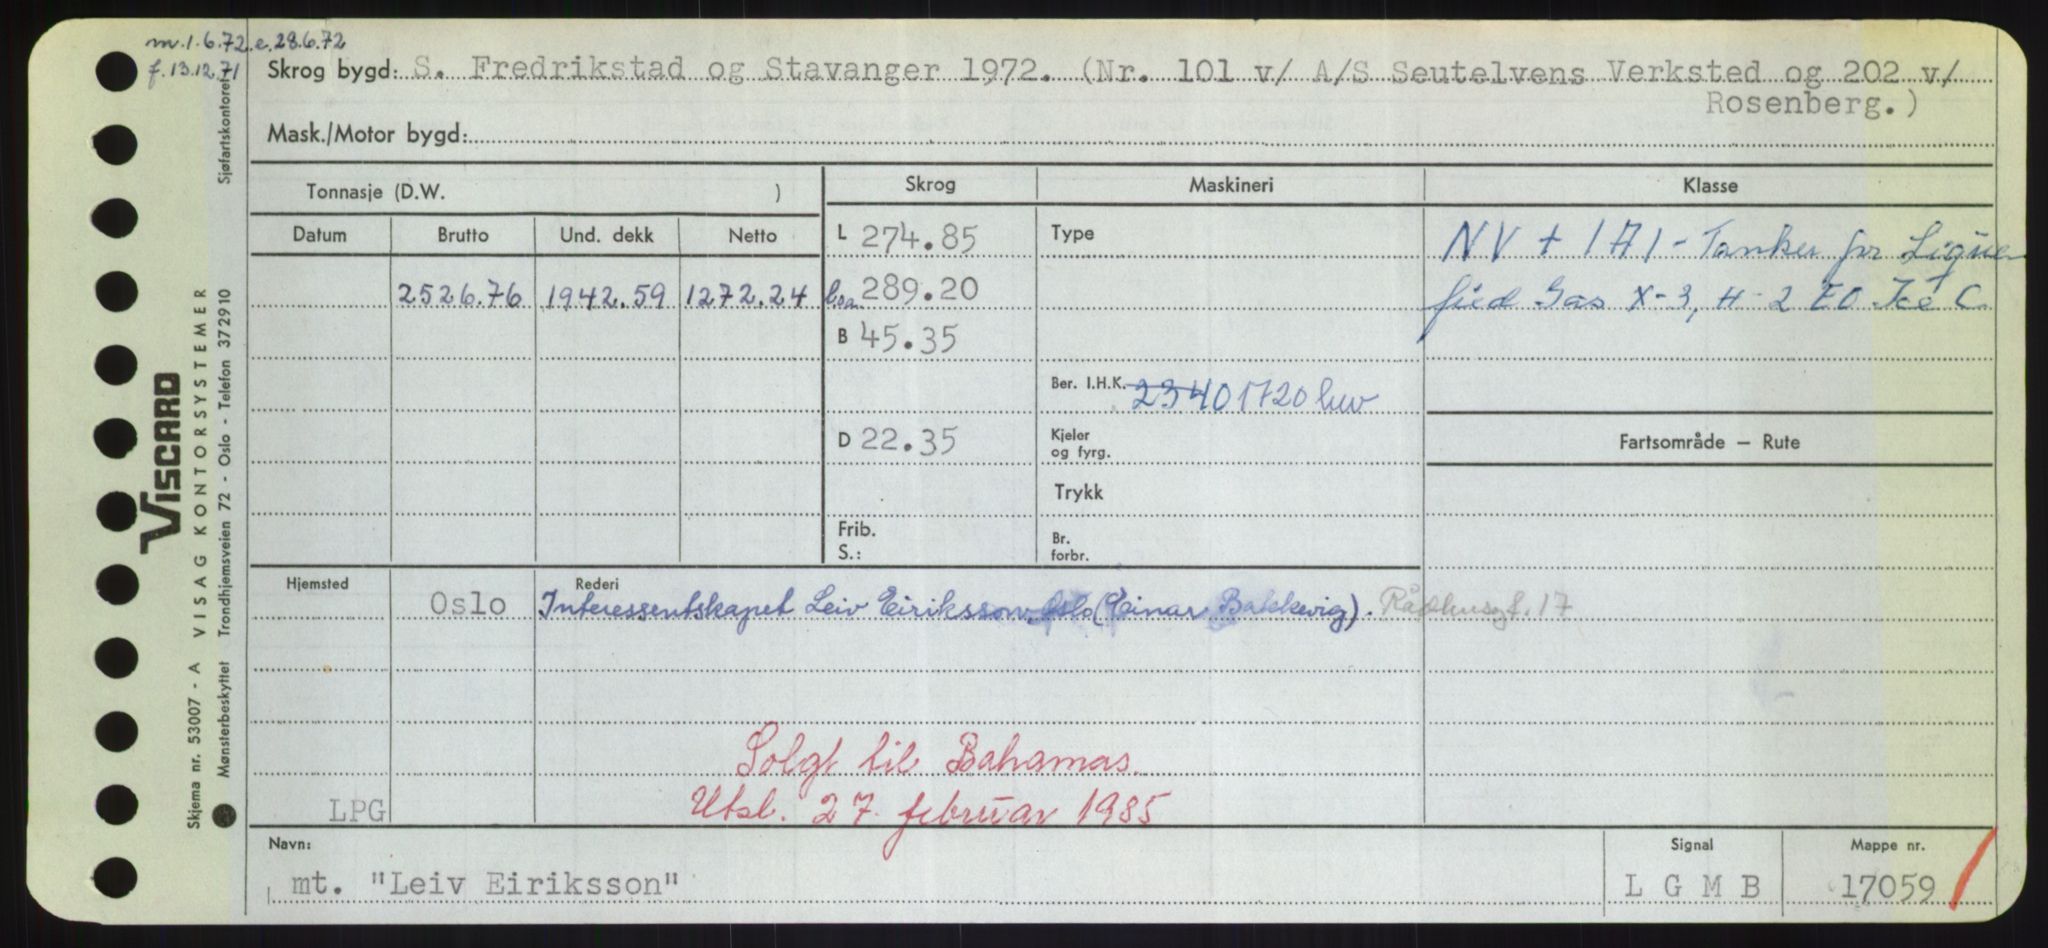 m.1.6.72.e.28.6.72
f.13.12.71
Skrog bygd: S. Fredrikstad og Stavanger 1972. (Nr. 101 v/ A/S Seutelvens Verksted og 202 v/
Rosenberg.)
Mask./Motor bygd:
Tonnasje (D.W. )
Skrog
Maskineri
Klasse
Datum
Brutto
Und. dekk
Netto
2526.76
1942.59
1272.24
L 274.85
Loa 289.20
B 45.35
D 22.35
Frib.
S.:
Type
Ber. I.H.K. 2340 1720 hw
Kjeler
og fyrg.
Trykk
Br.
forbr.
NV + 1A1 - Tanker for Lique
fied Gas X-3, H-2 EO Ice C
Fartsområde — Rute
Hjemsted
Oslo
Rederi
Interessentskapet Leiv Eiriksson, Oslo (Einar Bakkevig). Rådhusgt. 17
Solgt til Bahamas.
Utsl. 27. februar 1985
LPG
Navn:
mt. "Leiv Eiriksson"
Signal
L G M B
Mappe nr.
17059
VISCARD
Skjema nr. 53007 - A VISAG KONTORSYSTEMER
Mønsterbeskyttet Trondhjemsveien 72 - Oslo - Telefon 372910 Sjøfartskontoret